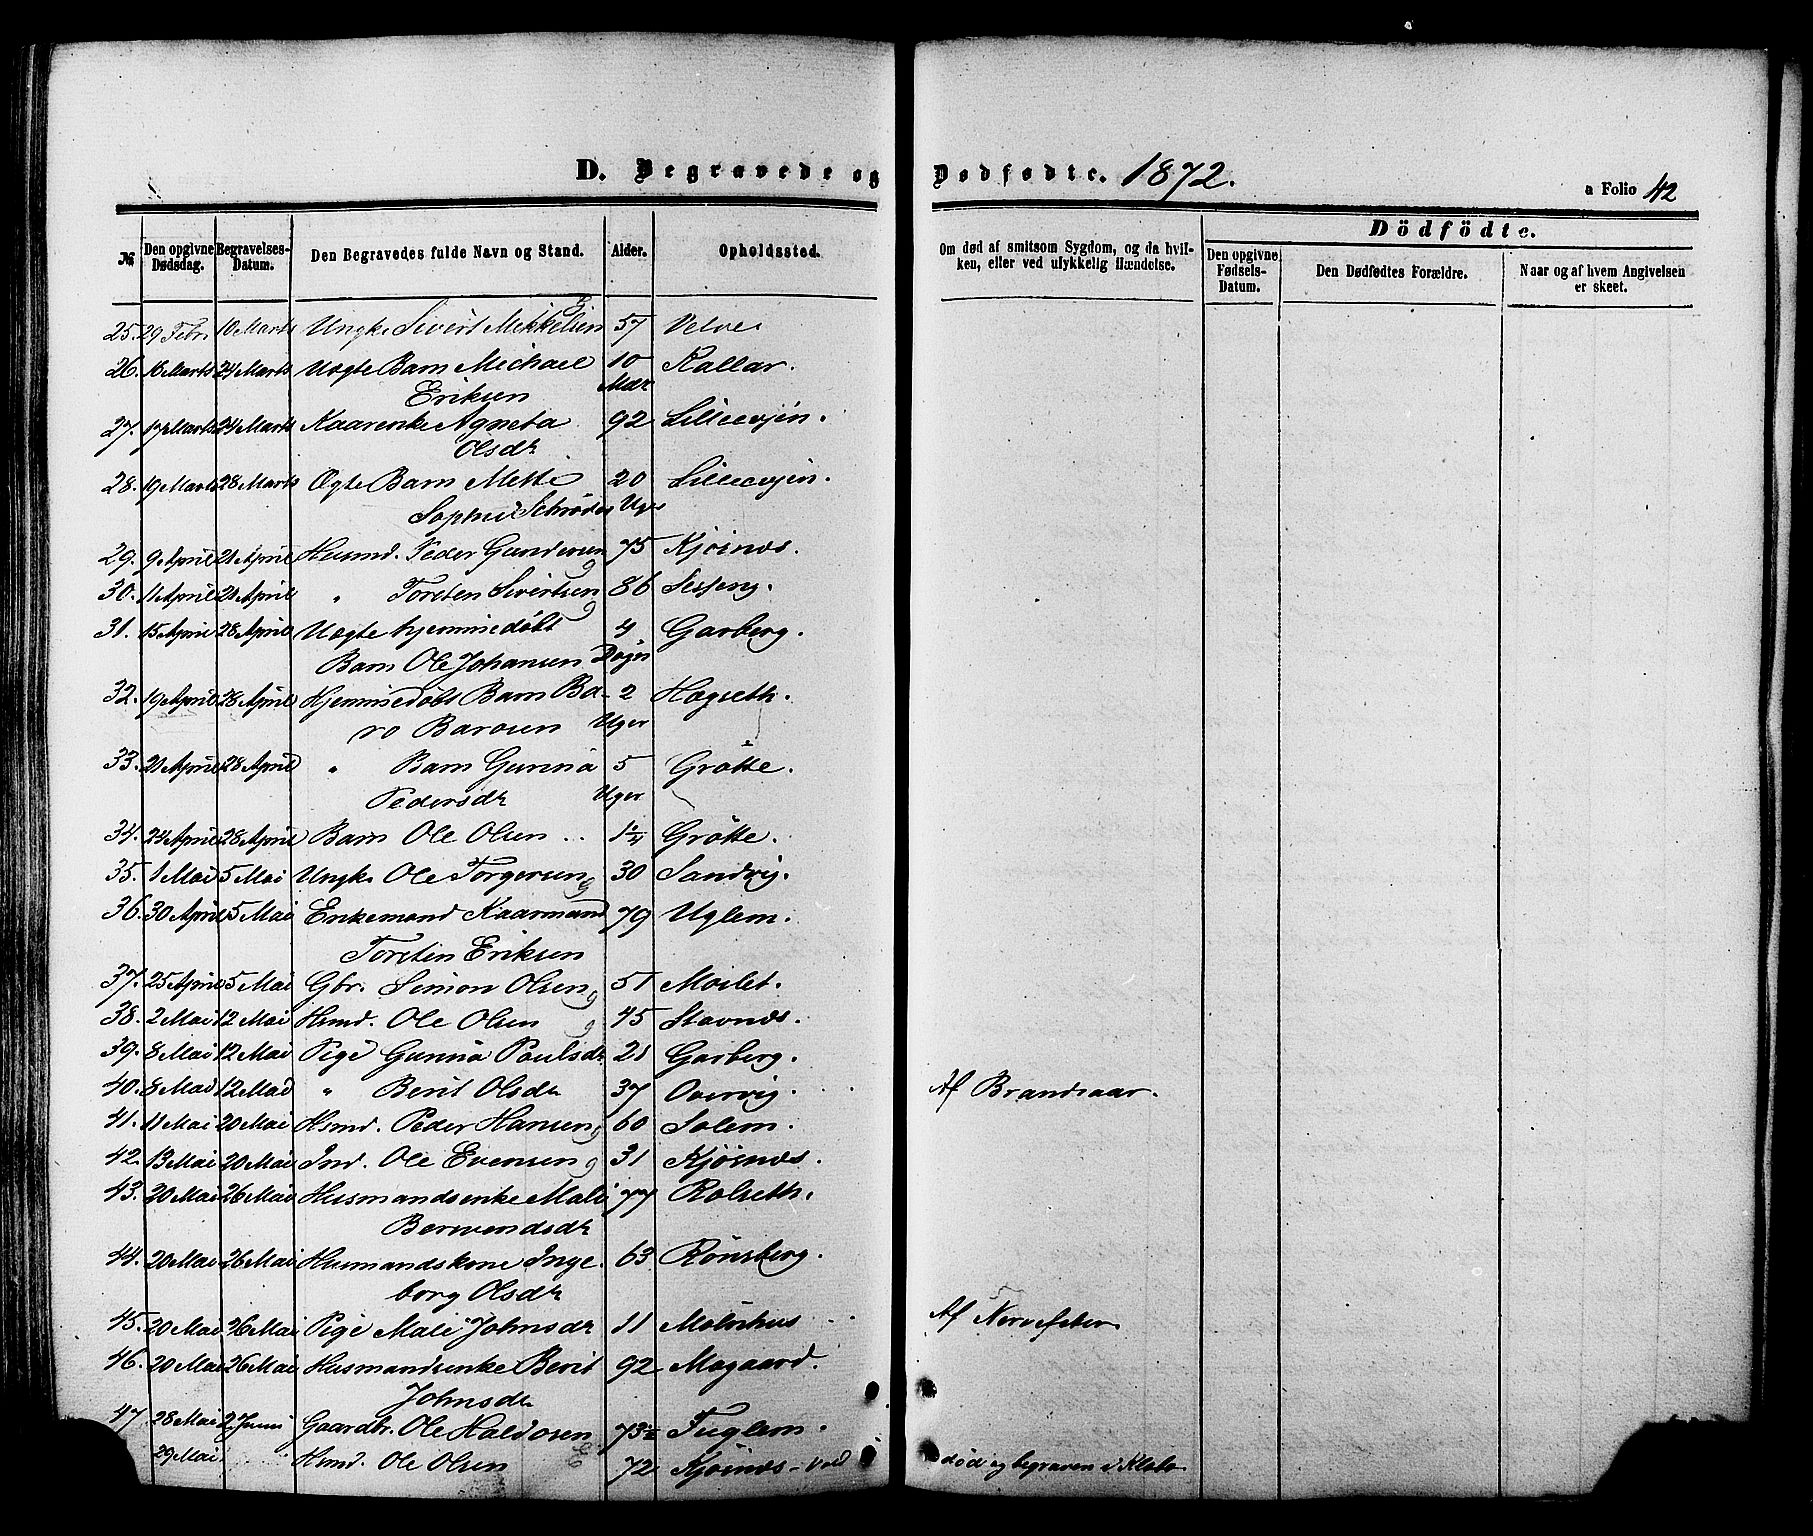 D. Begravede og Dødfødte. 1872.
a Folio 42
№ Den opgivne Dødsdag. Begravelses-Datum. Den Begravedes fulde Navn og Stand. Alder. Opholdssted. Om død af smitsom Sygdom, og da hvilken, eller ved ulykkelig Hændelse.
Dödfödte.
Den opgivne Fødsels-Datum. Den Dødfødtes Forældre. Naar og af hvem Angivelsen er skeet.
25. 29 Febr. 10 Marts Ungk. Sivert Mikkelsen 57 Velve
26. 16 Marts 24 Marts Uægte Barn Michael 10 Kallar.
Eriksen Mdr
27. 17 Marts 24 Marts Kaarenke Agneta 92 Lilleevjen.
Olsdr
28. 19 Marts 28 Marts Ægte Barn Mette 20 Lilleevjen.
Sophie Schrøder Uger
29. 9 April 21 April Husmd. Peder Gundersen 75 Kjøsnæs.
30. 11 April 21 April " Torsten Sivertsen 86 Sesseng.
31. 15 April 28 April Uægte hjemmedøbt 4 Garberg.
Barn Ole Johansen Døgn
32. 19 April 28 April Hjemmedøbt Barn Ba- 2 Hogseth.
ro Barosen Uger
33. 21 April 28 April " Barn Gunna 5 Grötte.
Pedersdr Uger
34. 24 April 28 April Barn Ole Olsen 1¼ Grötte.
35. 1 Mai 5 Mai Ungk. Ole Torgersen 30 Sandvig.
36. 30 April 5 Mai Enkemand Kaarmand 79 Uglem.
Torsten Eriksen
37. 25 April 5 Mai Gbr. Simon Olsen 51 Moslet.
38. 2 Mai 12 Mai Hsmd. Ole Olsen 45 Stavnæs.
39. 8 Mai 12 Mai Pige Gunna Paulsdr 21 Garberg.
40. 8 Mai 12 Mai " Berit Olsdr 37 Overvig. Af Brandsaar.
41. 11 Mai 20 Mai Hsmd. Peder Hansen 60 Solem.
42. 13 Mai 20 Mai Ind. Ole Evensen 31 Kjøsnæs.
43. 20 Mai 26 Mai Husmandsenke Mali 77 Rolseth.
Bersvendsdr
44. 20 Mai 26 Mai Husmandskone Inge- 63 Rönsberg.
borg Olsdr
45. 20 Mai 26 Mai Pige Mali Johnsdr 11 Mölnhus Af Nervefeber
46. 20 Mai 26 Mai Husmandsenke Berit 92 Mogaard.
Johnsdr
47. 28 Mai 2 Juni Gaardbr. Ole Haldosen 73½ Fuglem.
29 Mai Hsmd. Ole Olsen 72 Kjøsnæs-Vold død og begraven i Klæbo